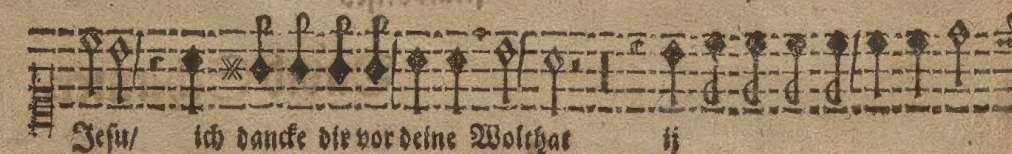 Jesu/ ich dancke dir vor deine Wolthat ij